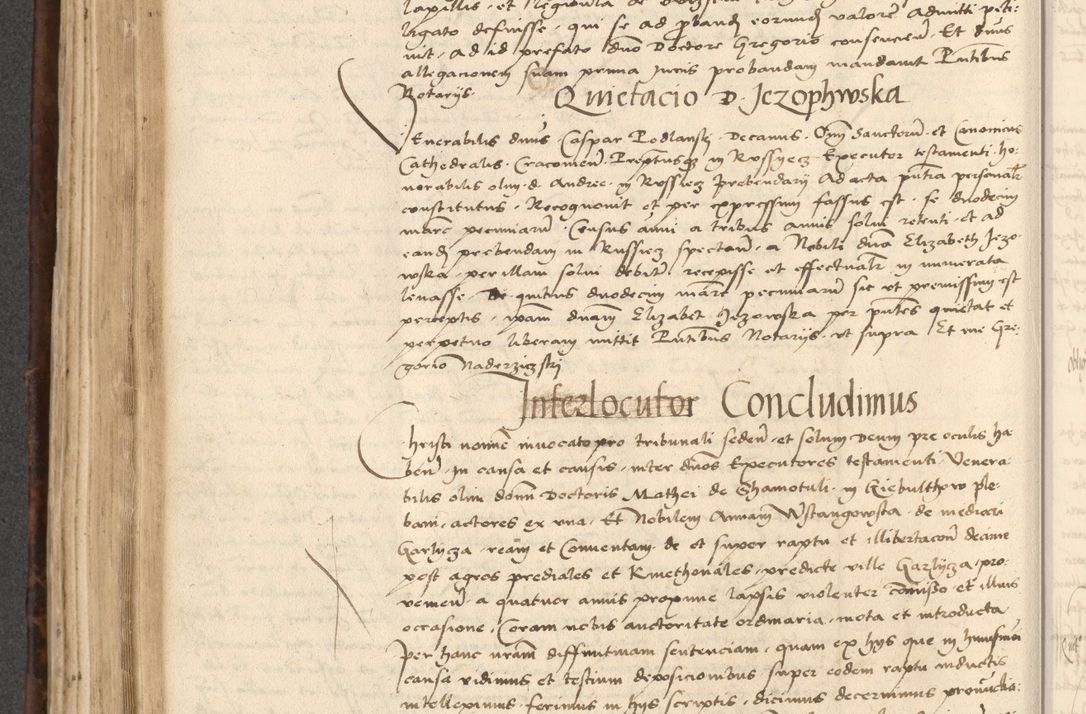 lapillis et
ligato defuisse, qui se ad proband eorund valore admitti peti-
uit, ad id prefato dno Doctore Gregorio consencien. Et dnus
allegacionem suam prima Juris probandam mandauit Pntibus
Notarijs.
Quietacio D. Jezophwska
Venerabilis dnus Caspar Podlanskj Decanus Omn Sanctoru et Canonicus
Cathedralis Cracouien. in Russyecz Executor testamenti ho-
norabilis olim d. Andree in Russiecz Prebendarij Ad acta pntia personalr
constitutus, Recognouit et per expressum fassus est, se duodecim
marc pecuniaru Census anni a tribus annis solui retenti et ad
eand prebendam in Russiecz spectan, a Nobili dna Elizabeth Jezo-
wska, per illam solui debit, recepisse et effectualr in numerata
leuasse, De quibus duodecim marc pecuniaru sic ut premissum est
perceptis, ipsam dnam Elizabet Jezowska per pntes quietat et
perpetuo liberam mittit Pntibus Notarijs ut supra Et me Gre-
gorio Naderziczskj
Interlocutor Concludimus
Christi nomine inuocato pro tribunali seden. et solum Deum pre oculis ha-
ben. In causa et causis, inter dnos Executores testamenti Venera-
bilis olim domni Doctoris Mathei de Shamotuli in Kiebulthow ple-
bani, actores ex vna, Et Nobilem Annam Wstangowska de mediocri
Garlycza, ream et Conuentam de et super raptu et illibertacon decime
post agros prediales et Kmethonales, predicte ville Garlycza, pro-
uenien. a quatuor annis proxime lapsis violenter comisso et illius
occasione, Coram nobis auctoritate ordinaria, mota et introducta
Per hanc nram diffinitiuam sentenciam, quam ex hijs que in huiusmodi
causa vidimus et testium deposicionibus super eodem raptu inductis
intelleximus, ferimus in hijs scriptis, dicimus decernimus pronuncia-